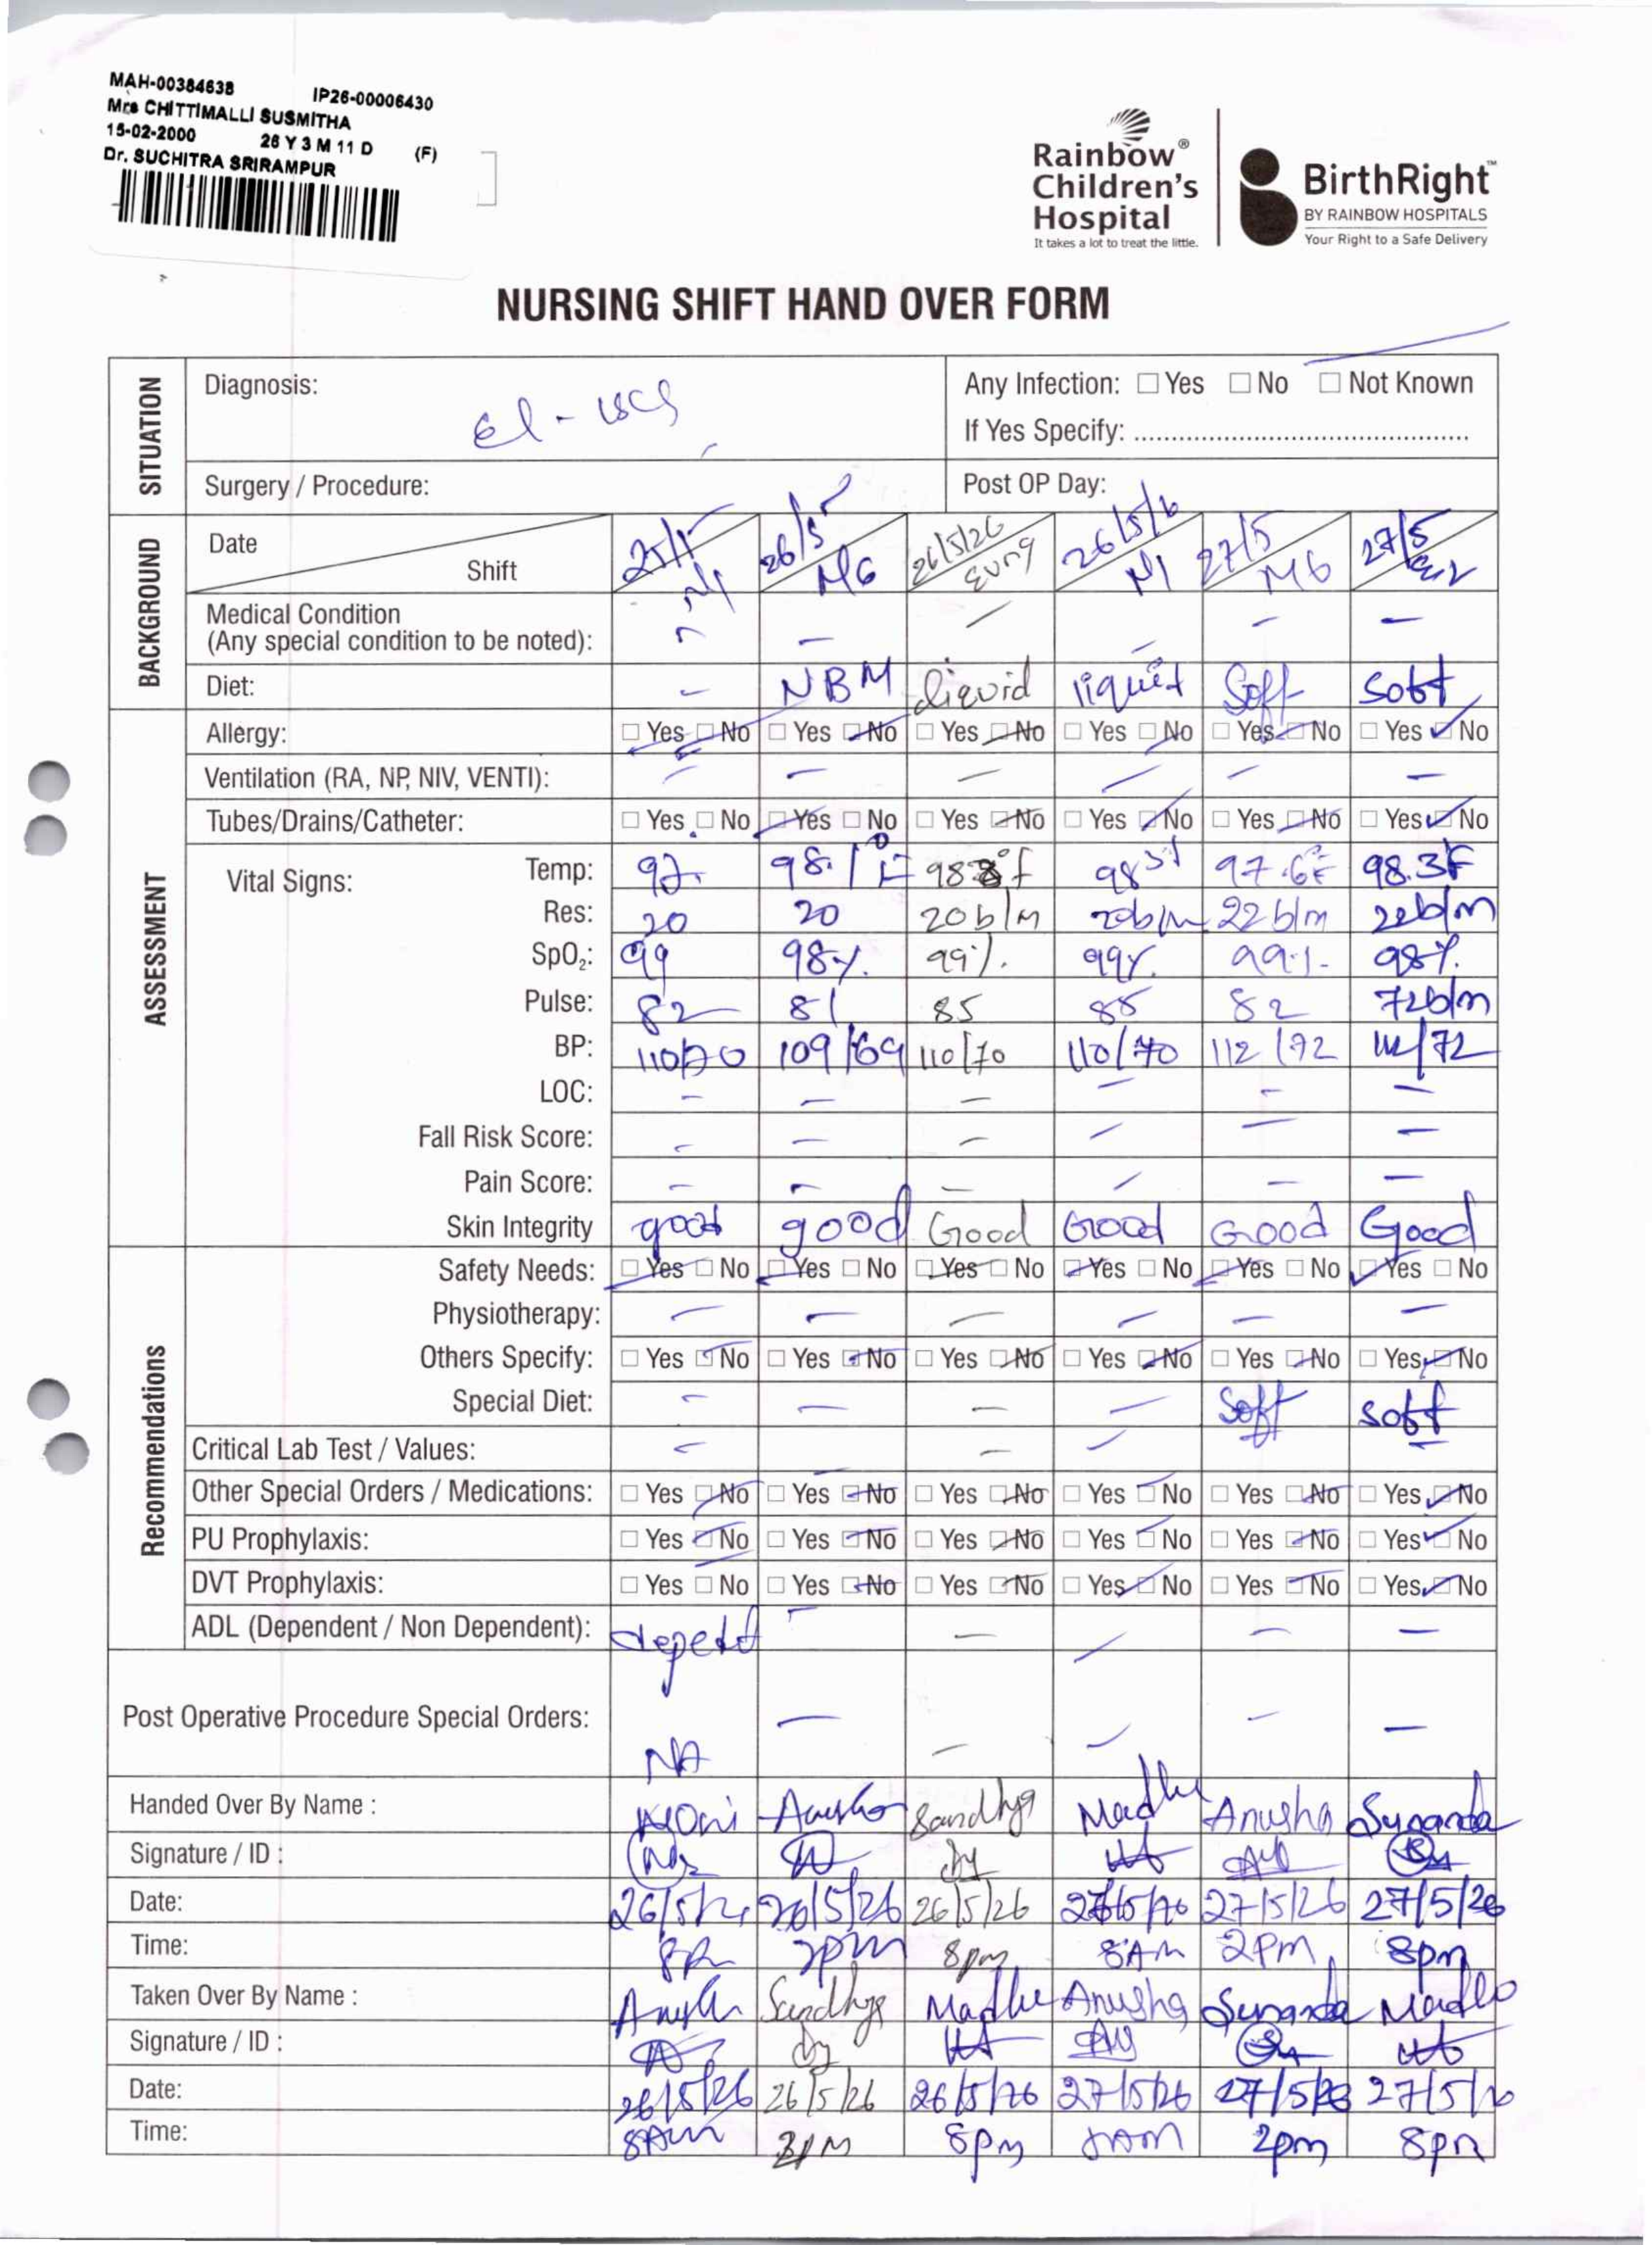 MAH-00384638 IP26-00006430
Mrs CHITTIMALLI SUSMITHA
15-02-2000 26 Y 3 M 11 D (F)
Dr. SUCHITRA SRIRAMPUR
Rainbow® Children's Hospital
It takes a lot to treat the little.
BirthRight™
BY RAINBOW HOSPITALS
Your Right to a Safe Delivery
NURSING SHIFT HAND OVER FORM
SITUATION
Diagnosis: El - LSCS
Any Infection: ☐ Yes ☐ No ☐ Not Known
If Yes Specify: ..........
Surgery / Procedure:
Post OP Day:
BACKGROUND
Date 26/5 26/5/26 26/5/26 27/5 27/5
Shift N1 MG Evng N1 MG Eve
Medical Condition
(Any special condition to be noted): – – – – –
Diet: – NBM liquid liquid Soft Soft
ASSESSMENT
Allergy: ☐ Yes ☐ No ☐ Yes ☑ No ☐ Yes ☑ No ☐ Yes ☑ No ☐ Yes ☑ No ☐ Yes ☑ No
Ventilation (RA, NP, NIV, VENTI): – – – – – –
Tubes/Drains/Catheter: ☐ Yes ☐ No ☑ Yes ☐ No ☐ Yes ☑ No ☐ Yes ☑ No ☐ Yes ☑ No ☐ Yes ☑ No
Vital Signs:
Temp: 98.1°F 97.6°F 98.3F
Res: 20 20 20 b/m 20b/m 22 b/m 22b/m
SpO₂: 99 98% 99% 99% 99% 98%
Pulse: 82 81 85 88 82 72b/m
BP: 110/70 109/69 110/70 110/70 112/72 112/72
LOC: – – – – – –
Fall Risk Score: – – – – – –
Pain Score: – – – – – –
Skin Integrity good good Good Good Good Good
Recommendations
Safety Needs: ☑ Yes ☐ No ☑ Yes ☐ No ☑ Yes ☐ No ☑ Yes ☐ No ☑ Yes ☐ No ☑ Yes ☐ No
Physiotherapy: – – – – – –
Others Specify: ☐ Yes ☑ No ☐ Yes ☑ No ☐ Yes ☑ No ☐ Yes ☑ No ☐ Yes ☑ No ☐ Yes ☑ No
Special Diet: – – – – Soft Soft
Critical Lab Test / Values: – – – – – –
Other Special Orders / Medications: ☐ Yes ☑ No ☐ Yes ☑ No ☐ Yes ☑ No ☐ Yes ☑ No ☐ Yes ☑ No ☐ Yes ☑ No
PU Prophylaxis: ☐ Yes ☑ No ☐ Yes ☑ No ☐ Yes ☑ No ☐ Yes ☑ No ☐ Yes ☑ No ☐ Yes ☑ No
DVT Prophylaxis: ☐ Yes ☐ No ☐ Yes ☑ No ☐ Yes ☑ No ☐ Yes ☑ No ☐ Yes ☑ No ☐ Yes ☑ No
ADL (Dependent / Non Dependent): – – – – –
Post Operative Procedure Special Orders: NA – – – – –
Handed Over By Name : Anusha Sandhya Madhu Anusha Sunanda
Signature / ID :
Date: 26/5/26 26/5/26 26/5/26 27/5/26 27/5/26
Time: 2pm 8pm 8AM 2PM 8pm
Taken Over By Name : Anusha Sandhya Madhu Anusha Sunanda Madhu
Signature / ID :
Date: 26/5/26 26/5/26 26/5/26 27/5/26 27/5/26 27/5/26
Time: 8AM 2PM 8pm 8AM 2pm 8pm